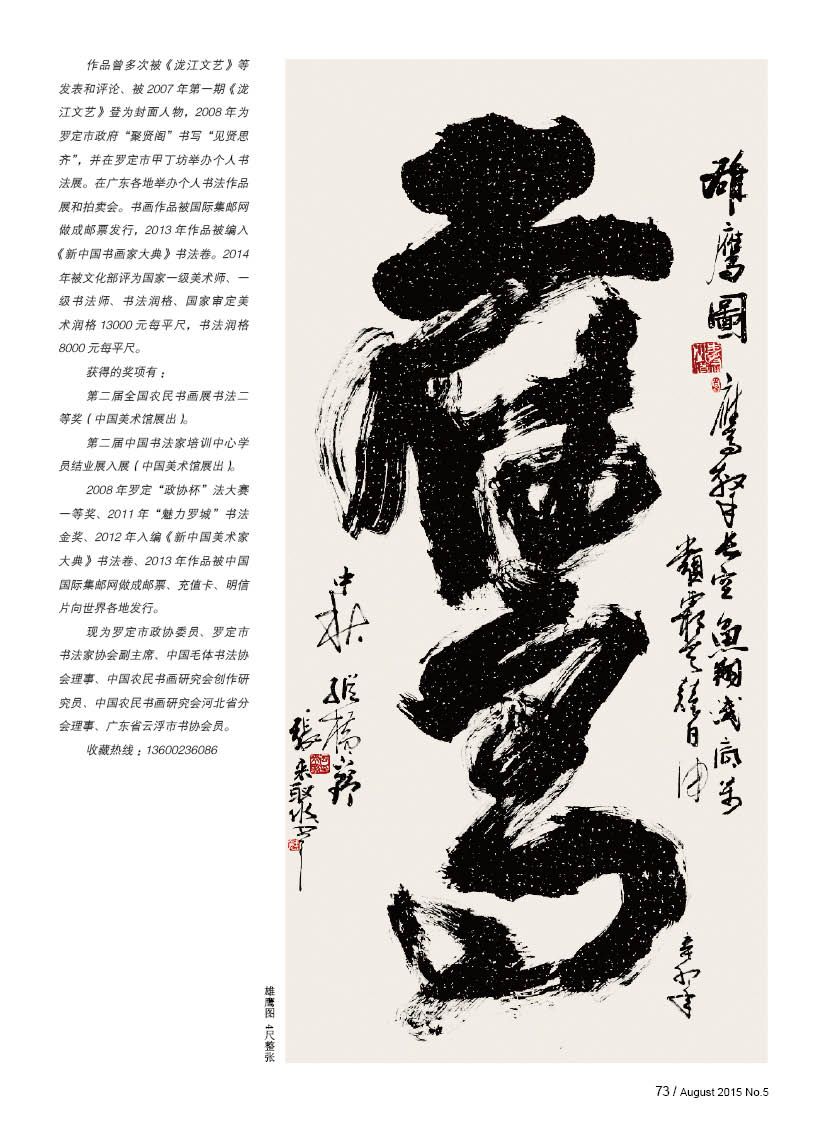 作品曾多次被《泷江文艺》等
发表和评论、被 2007 年第一期《泷
江文艺》登为封面人物，2008 年为
罗定市政府“聚贤阁”书写“见贤思
齐”，并在罗定市甲丁坊举办个人书
法展。在广东各地举办个人书法作品
展和拍卖会。书画作品被国际集邮网
做成邮票发行，2013 年作品被编入
《新中国书画家大典》书法卷。2014
年被文化部评为国家一级美术师、一
级书法师、书法润格、国家审定美
术润格 13000 元每平尺，书法润格
8000 元每平尺。
获得的奖项有：
第二届全国农民书画展书法二
等奖（中国美术馆展出）。
第二届中国书法家培训中心学
员结业展入展（中国美术馆展出）。
2008 年罗定“政协杯”法大赛
一等奖、2011 年“魅力罗城”书法
金奖、2012 年入编《新中国美术家
大典》书法卷、2013 年作品被中国
国际集邮网做成邮票、充值卡、明信
片向世界各地发行。
现为罗定市政协委员、罗定市
书法家协会副主席、中国毛体书法协
会理事、中国农民书画研究会创作研
究员、中国农民书画研究会河北省分
会理事、广东省云浮市书协会员。
收藏热线：13600236086
雄鹰圖
鹰击长空鱼翔浅底万
類霜天競自由
鹰
中秋
雄鹰图 4尺整张
73 / August 2015 No.5